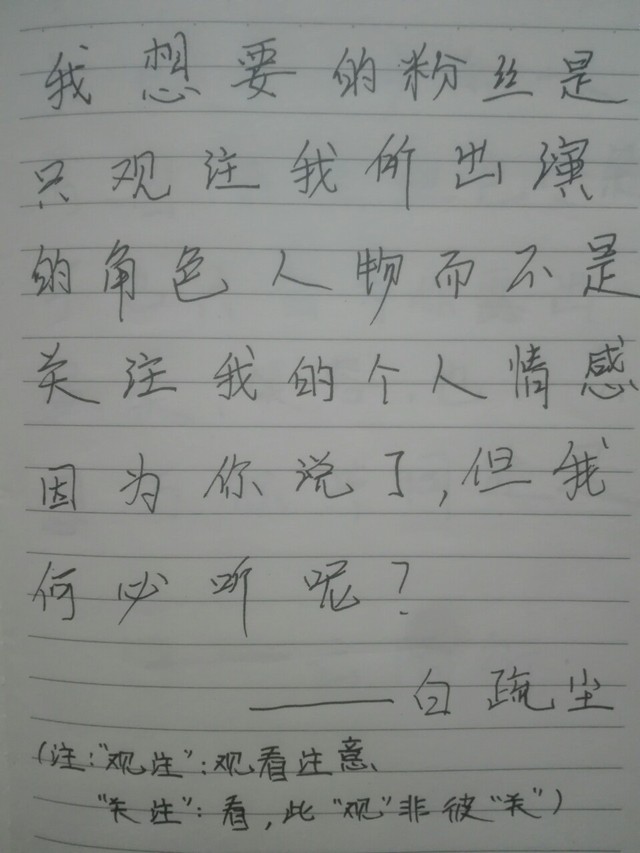 我想要的粉丝是
只观注我所出演
的角色人物而不是
关注我的个人情感
因为你说了,但我
何必听呢?
——白疏尘
(注:"观注":观看注意、
"关注":看,此"观"非彼"关")